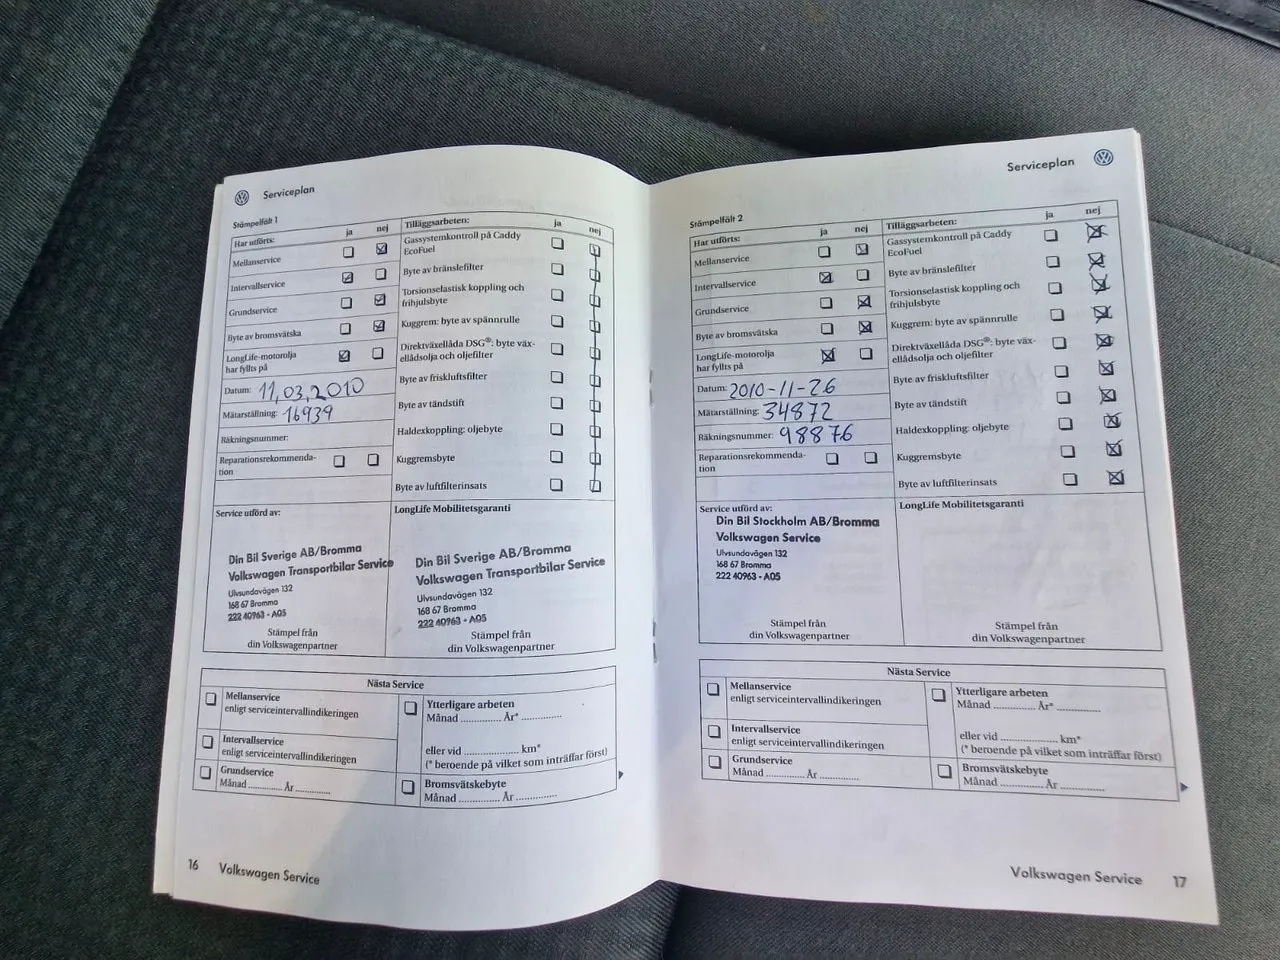 Serviceplan
Stämpelfält 1
Har utförts: ja nej
Mellanservice
Intervallservice
Grundservice
Byte av bromsvätska
LongLife-motorolja
har fyllts på
Datum: 11,03,2010
Mätarställning: 16939
Räkningsnummer:
Reparationsrekommenda-
tion
Tilläggsarbeten: ja nej
Gassystemkontroll på Caddy
EcoFuel
Byte av bränslefilter
Torsionselastisk koppling och
frihjulsbyte
Kuggrem: byte av spännrulle
Direktväxellåda DSG®: byte väx-
ellådsolja och oljefilter
Byte av friskluftsfilter
Byte av tändstift
Haldexkoppling: oljebyte
Kuggremsbyte
Byte av luftfilterinsats
Service utförd av:
Din Bil Sverige AB/Bromma
Volkswagen Transportbilar Service
Ulvsundavägen 132
168 67 Bromma
222 40963 - A05
Stämpel från
din Volkswagenpartner
LongLife Mobilitetsgaranti
Din Bil Sverige AB/Bromma
Volkswagen Transportbilar Service
Ulvsundavägen 132
168 67 Bromma
222 40963 - A05
Stämpel från
din Volkswagenpartner
Nästa Service
Mellanservice
enligt serviceintervallindikeringen
Intervallservice
enligt serviceintervallindikeringen
Grundservice
Månad ............ År ............
Ytterligare arbeten
Månad .............. År* ..............
eller vid ................... km*
(* beroende på vilket som inträffar först)
Bromsvätskebyte
Månad .............. År ..............
16 Volkswagen Service
Serviceplan
Stämpelfält 2
Har utförts: ja nej
Mellanservice
Intervallservice
Grundservice
Byte av bromsvätska
LongLife-motorolja
har fyllts på
Datum: 2010-11-26
Mätarställning: 34872
Räkningsnummer: 98876
Reparationsrekommenda-
tion
Tilläggsarbeten: ja nej
Gassystemkontroll på Caddy
EcoFuel
Byte av bränslefilter
Torsionselastisk koppling och
frihjulsbyte
Kuggrem: byte av spännrulle
Direktväxellåda DSG®: byte väx-
ellådsolja och oljefilter
Byte av friskluftsfilter
Byte av tändstift
Haldexkoppling: oljebyte
Kuggremsbyte
Byte av luftfilterinsats
Service utförd av:
Din Bil Stockholm AB/Bromma
Volkswagen Service
Ulvsundavägen 132
168 67 Bromma
222 40963 - A05
Stämpel från
din Volkswagenpartner
LongLife Mobilitetsgaranti
Stämpel från
din Volkswagenpartner
Nästa Service
Mellanservice
enligt serviceintervallindikeringen
Intervallservice
enligt serviceintervallindikeringen
Grundservice
Månad ............ År ............
Ytterligare arbeten
Månad .............. År* ..............
eller vid ................... km*
(* beroende på vilket som inträffar först)
Bromsvätskebyte
Månad .............. År ..............
Volkswagen Service 17